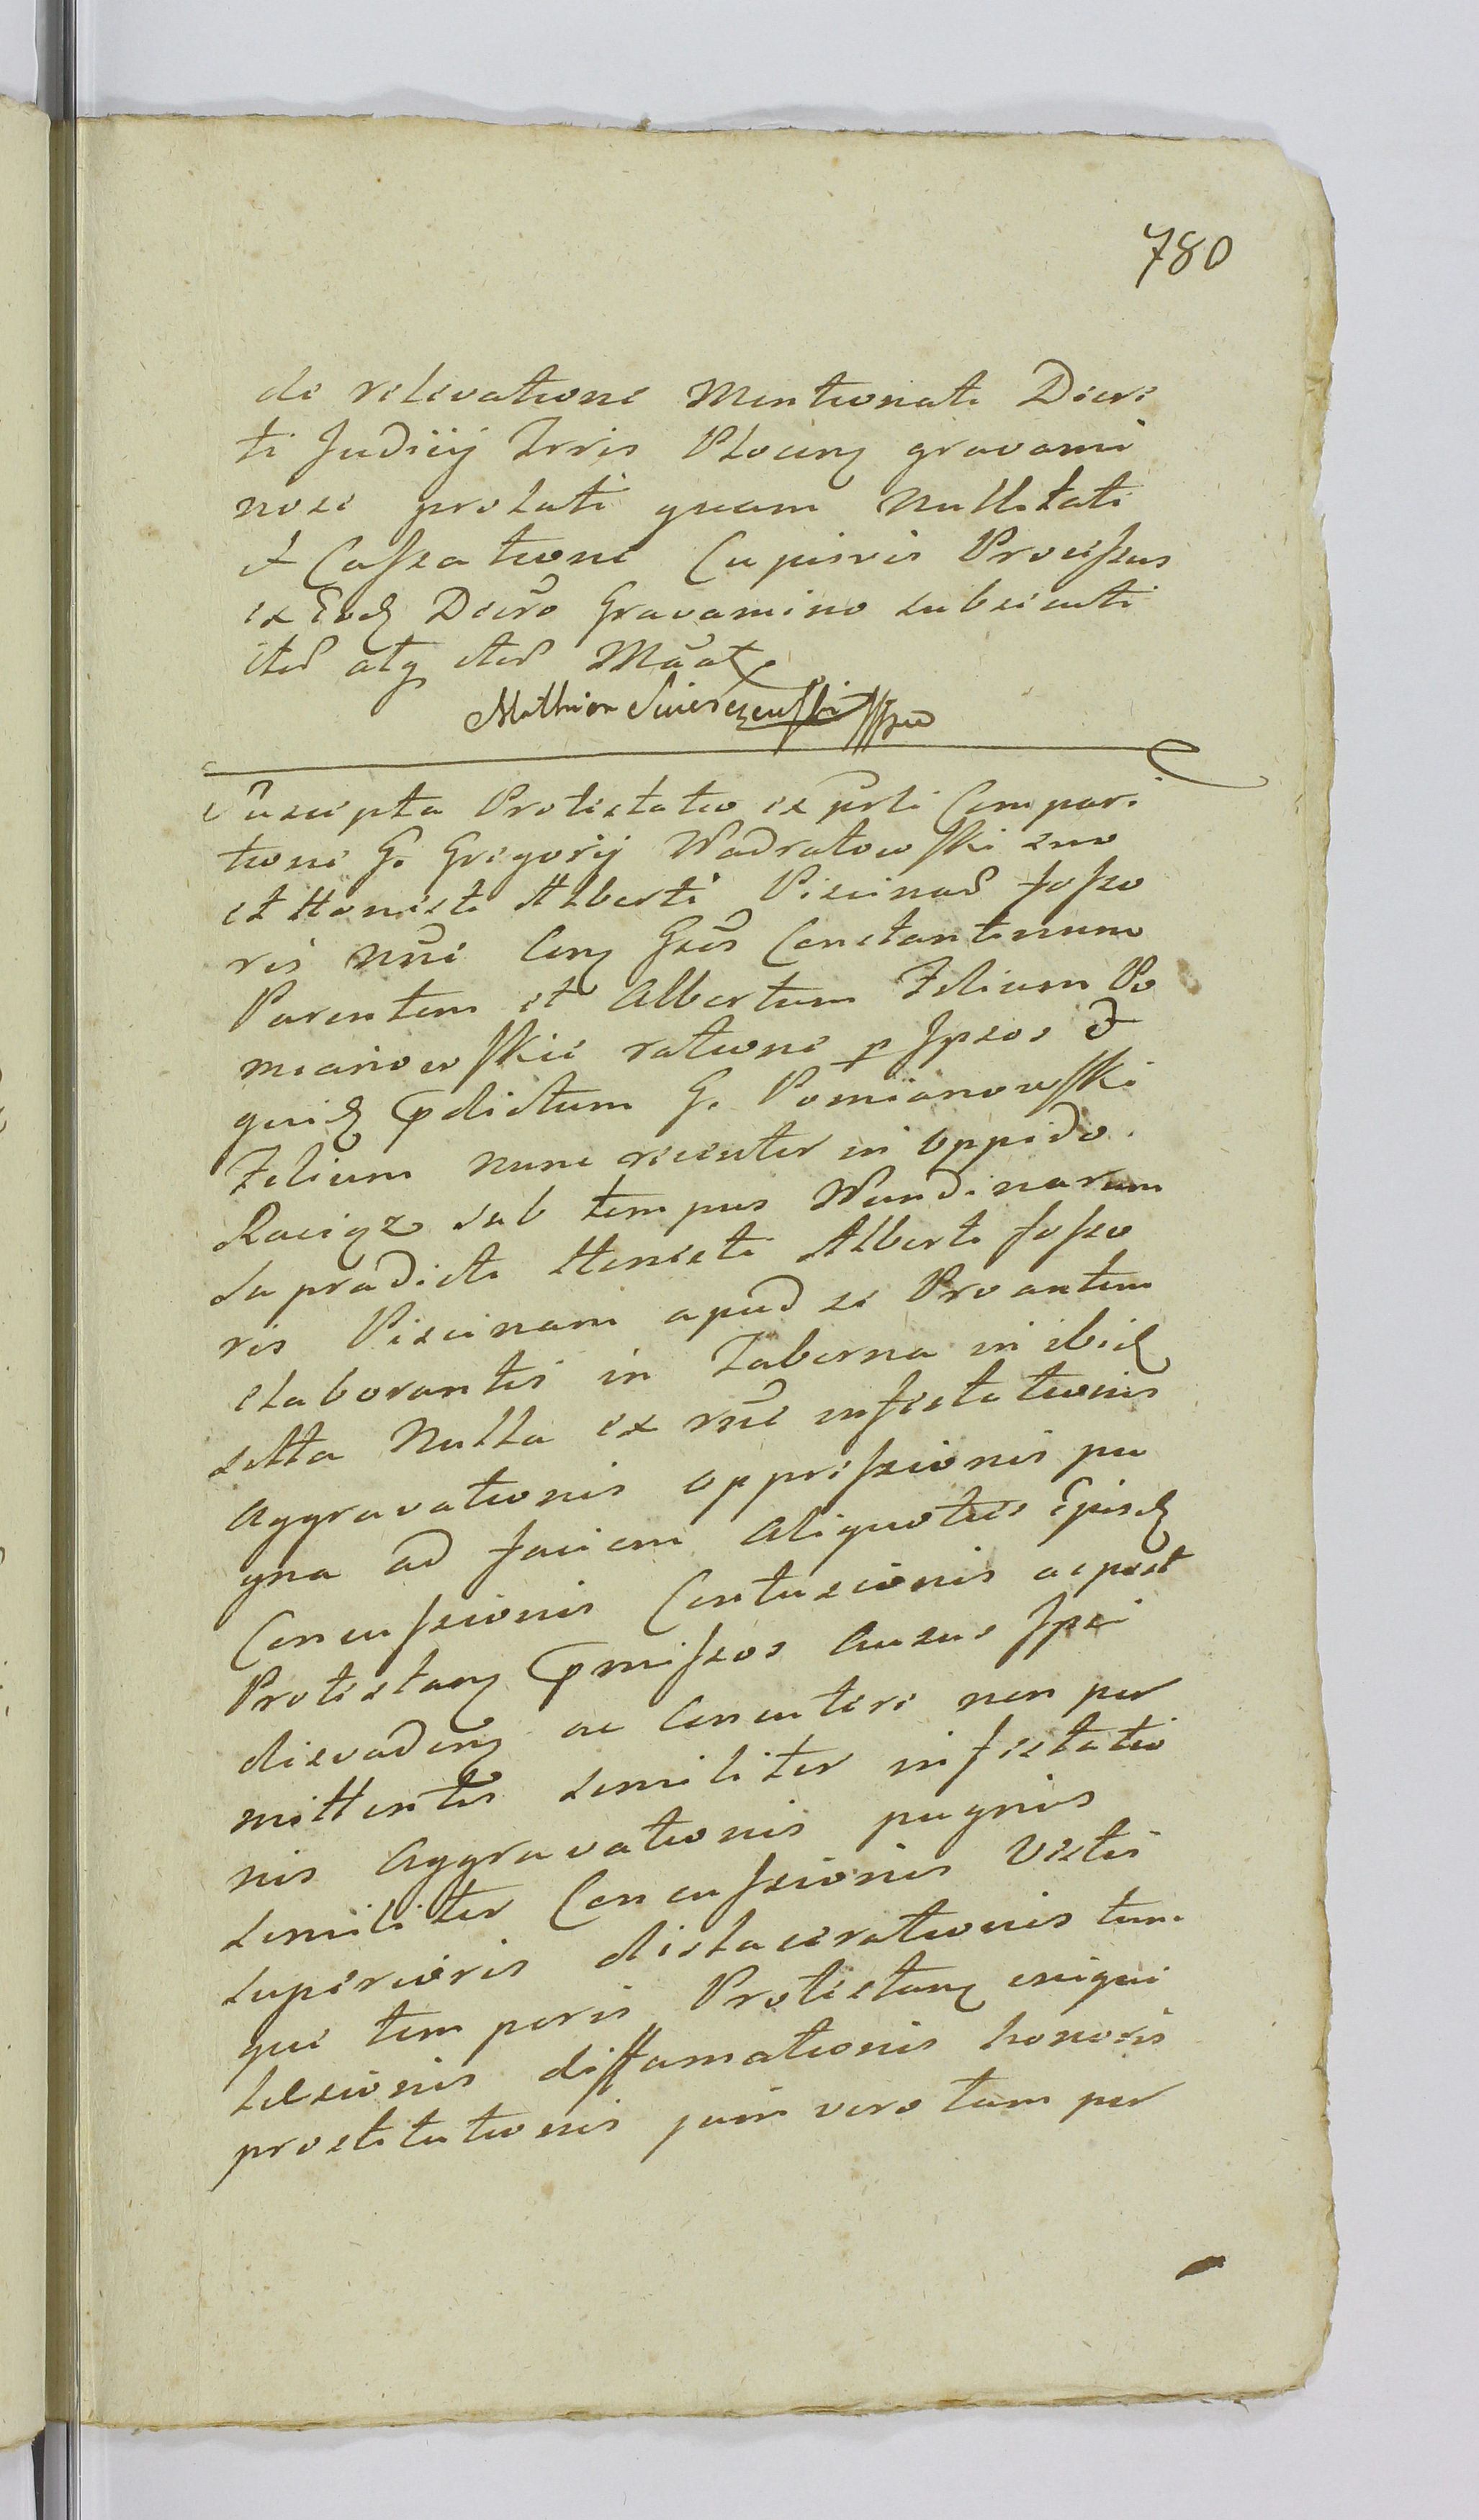 780
de relevatione Mentionati Decre
ti Judicij Trris Plocen gravami
nose prolati quam Nullitati
et Cassatione Cujusvis Processus
ex Eod Decro Gravamino subsecuti
ited atq ited Māat
Mathias Swierczewski
Suscepta Protestatio ex prti Compari
tione G. Gregorij Nadratowski suo
et Honesti Alberti Piscinad fosso
ris nūe Con Gsos Constantinum
Parentem et Albertum Filium Po
mianowskie ratione p Ipsos &
quid pdictum G. Pomianowski
Filium nunc recenter in oppido
Raciąz sub tempus Nundinarum
supradicti Honesti Alberti fosso
ris Piscinam apud se Proantem
elaborantis in Taberna in ibid
setta Nulla ex rñe infestationis
Aggravationis oppressionis pu
gna ad faciem Aliquoties Episd
Concussionis Contusionis ac post
Protestan pmissos Ausus Ipsi
disvaden ac Concutere non per
mittentis similiter infestatio
nis Aggravationis pugnis
similiter Concussionis Vestis
superioris dislacerationis tum
que temporis Protestan iniqui
læsionis diffamationis honoris
prostitutionis jam vero tam per